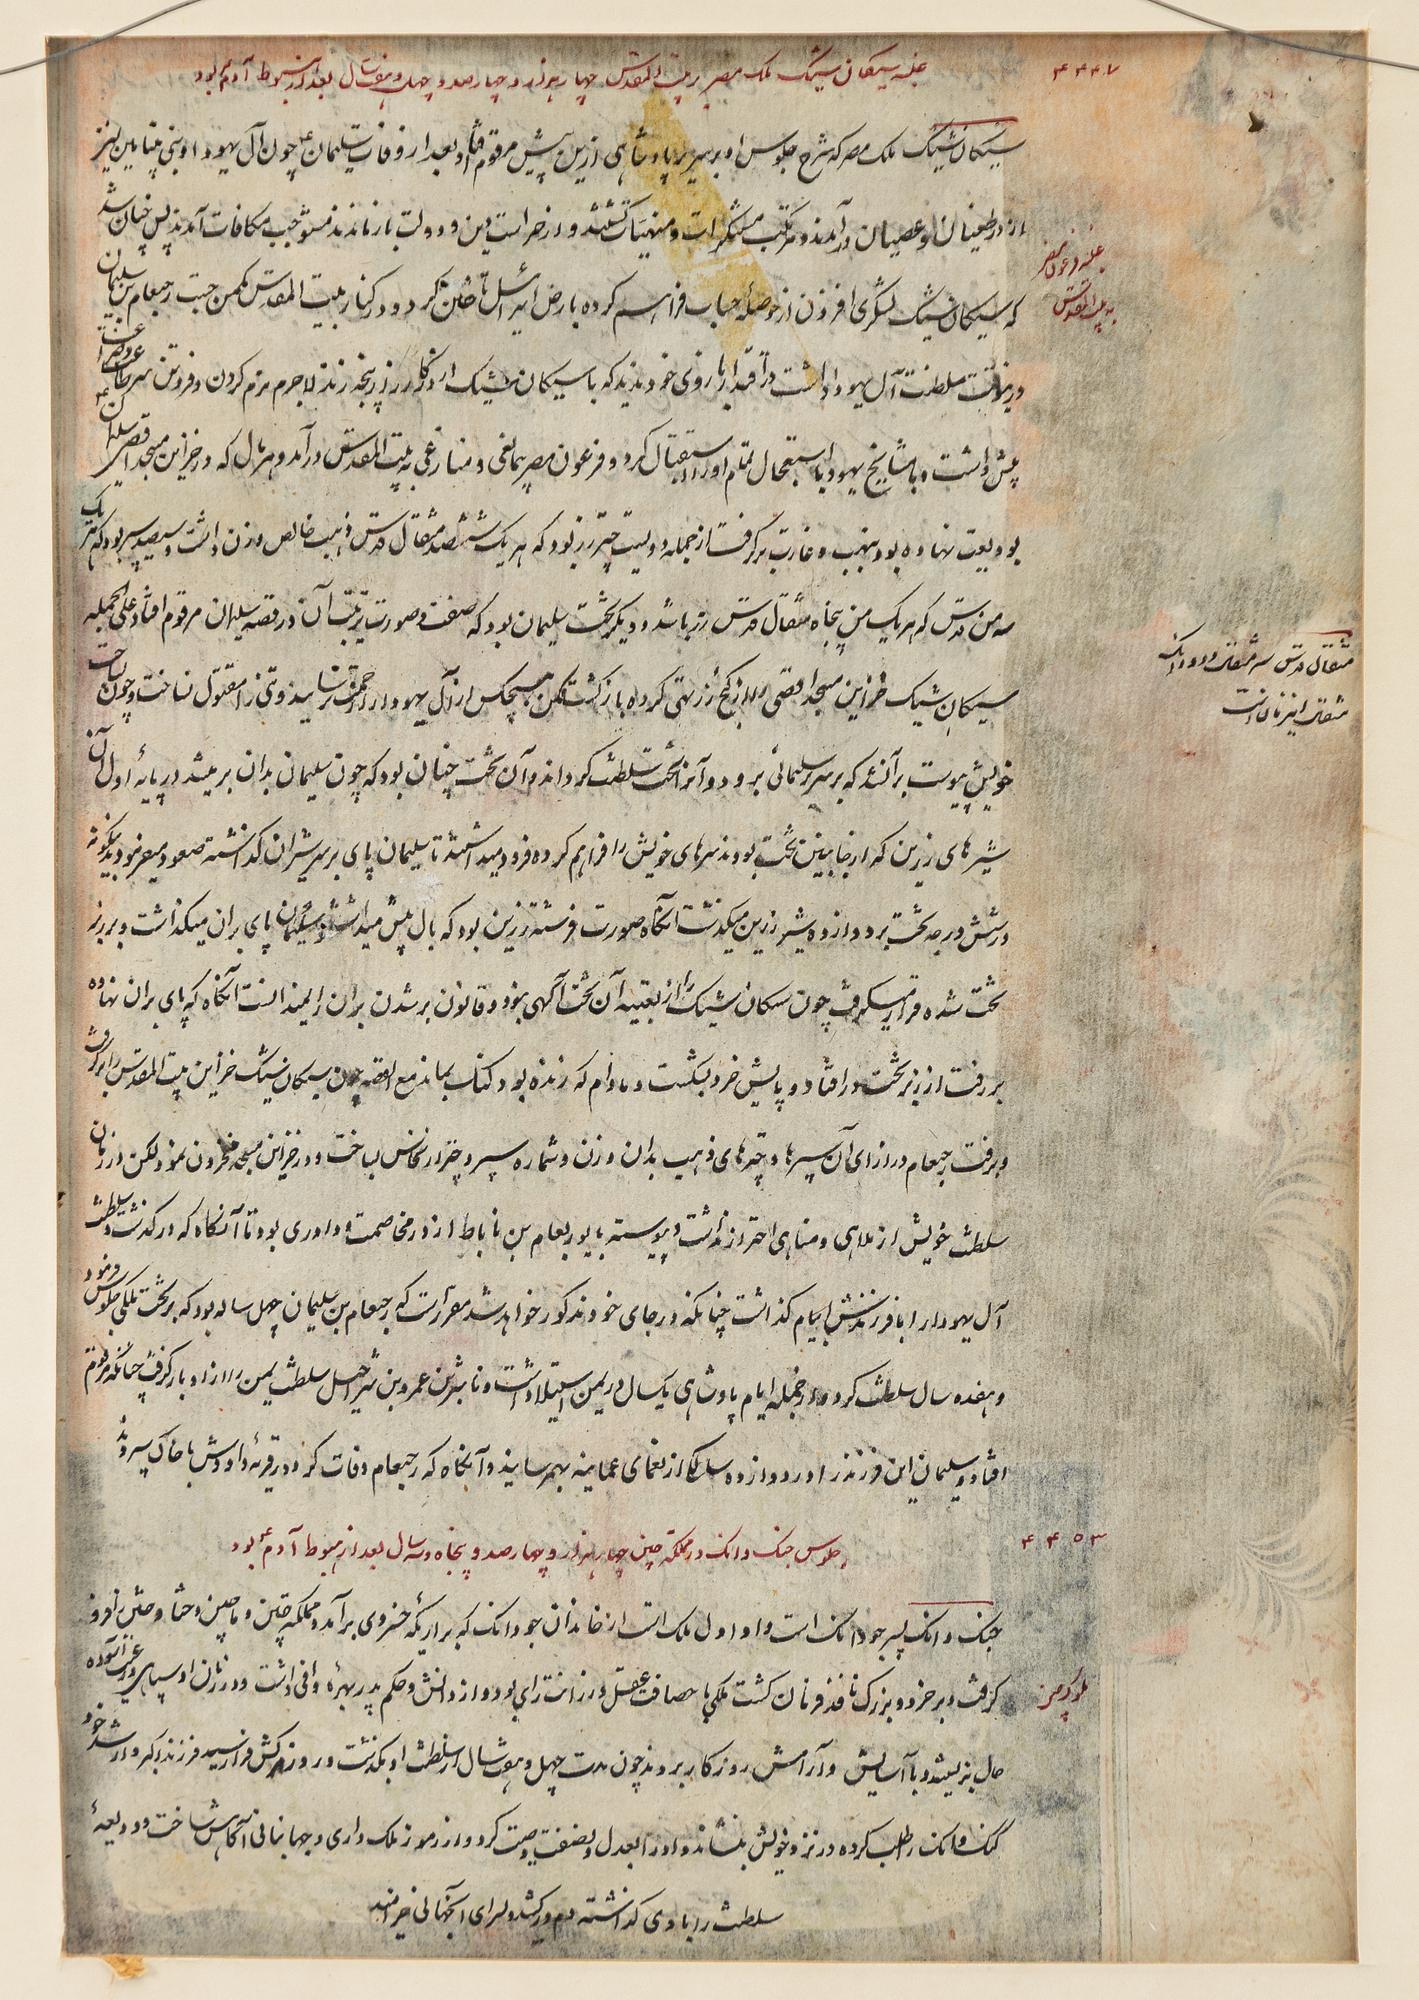 غلبه سیکان شیشک ملک مصر بر بیت المقدس چهار هزار و چهارصد و چهل و هفت سال بعد از هبوط آدم بود
۴۴۴۷
سیکان شیشک ملک مصر که شرح جلوس او بر سریر پادشاهی ازین پیش مرقوم افتاد بعد از وفات سلیمان چون آل یهودا و بنی بنیامین نیز
از در طغیان و عصیان درآمدند و مرتکب منکرات و منهیات گشتند و از حراست دین و دولت باز ماندند مستوجب مکافات آمدند پس چنان شد
غلبه فرعون مصر
به بیت المقدس
که سیکان شیشک لشگری افزون از حوصله حساب فراهم کرده بارض اسرائیل تاختن کرد و در کنار بیت المقدس مکمن جست رحبعام بن سلیمان
درینوقت سلطنت آل یهودا داشت در آن قوت بازوی خود ندید که با سیکان شیشک در کارزار پنجه زند لاجرم عزم کردن و فروتنی
پیش داشت و با مشایخ یهودا باستعجال تمام او را استقبال کرد و فرعون مصر بیمانعی و منازعی به بیت المقدس درآمد و هر مال که در خزاین مسجد اقصی سلیمان
بودیعت نهاده بود بنهب و غارت برگرفت از جمله دویست چتر زر بود که هر یک ششصد مثقال قدس ذهب خالص وزن داشت و سیصد سپر بود که هر یک
سه من قدس که هر یک من پنجاه مثقال قدس زر باشد و دیگر تخت سلیمان بود که صفت و صورت ترتیب آن در قصه سلیمان مرقوم افتاد علی الجمله
مثقال قدس سه مثقال و دو دانک
مثقال این زمان است
سیکان شیشک خزاین مسجد اقصی را از گنج و زر تهی کرده باز گشت لکن هیچکس از آل یهودا را زحمت نرسانید و تنی را مقتول نساخت و چون بتخت
خویش پیوست بر آن شد که بر سریر سلیمانی برود و آنرا تخت سلطنت گرداند و آن تخت چنان بود که چون سلیمان بدان بر میشد در پایه اول آن
شیرهای زرین که از جانبین تخت بودند سرهای خویش را فراهم کرده فرود میداشتند تا سلیمان پای بر سر شیران گذاشته صعود میفرمود بدینگونه
در شش درجه تخت بر دوازده شیر زرین میگذشت آنگاه صورت فرشته زرین بود که بال پیش میداشت و سلیمان پای بران میگذاشت و بر زبر
تخت شده قرار میگرفت چون سیکان شیشک را از تعبیه آن تخت آگهی نبود و قانون بر شدن بران را نمیدانست آنگاه که پای بران نهاده
بر رفت از زبر تخت در افتاد و پایش خرد بشکست و مادام که زنده بود لنگ بماند مع القصه چون سیکان شیشک خزاین بیت المقدس را برگرفت
و برفت رحبعام در ازای آن سپرها و چترهای ذهب بدان وزن و شماره سپر و چتر از نحاس بساخت و در خزاین مسجد مخزون نمود لکن در زمان
سلطنت خویش از ملاهی و مناهی احتراز نداشت و پیوسته با یوربعام بن ناباط از در مخاصمت و داوری بود تا آنگاه که در گذشت و سلطنت
آل یهودا را با فرزندش ابیام گذاشت چنانکه در جای خود مذکور خواهد شد مقرر است که رحبعام بن سلیمان چهل ساله بود که بر تخت ملکی جلوس فرمود
و هفده سال سلطنت کرد و از جمله ایام پادشاهی یکسال در یمن استیلا داشت و ناشر بن عمرو بن شراحیل سلطنت یمن را از او باز گرفت چنانکه مرقوم
افتاد و سلیمان این فرزند را در دوازده سالگی از نعمای عمانیه بهم رسانید و آنگاه که رحبعام وفات کرد در قریه داودش با خاک سپردند
جلوس جنک وانک در مملکت چین چهار هزار و چهارصد و پنجاه و سه سال بعد از هبوط آدم بود
۴۴۵۳
جنک وانک پسر جودانک است و او اول ملک است از خاندان جودانک که بر اریکه خسروی برآمد و مملکت چین و ماچین و ختا و ختن را فرو
گرفت و بر خرد و بزرگ نافذ فرمان گشت ملکی با حصافت عقل و رزانت رای بود و از دانش و حکم پدر بهره وافی داشت و در زمان او سپاهی و رعیت آسوده
حال بزیستند و با آسایش و آرامش روزگار بردند چون مدت چهل و هفت سال از سلطنت او بگذشت و روز مرگش فرا رسید فرزند اکبر و ارشد خود
کنک وانک را طلب کرده در نزد خویش بنشاند و او را بعدل و نصفت وصیت کرد و از رموز ملک داری و جهانبانی آگاهش ساخت و ودیعه
سلطنت را با وی گذاشته دم در کشید و بسرای آنجهانی خرامید